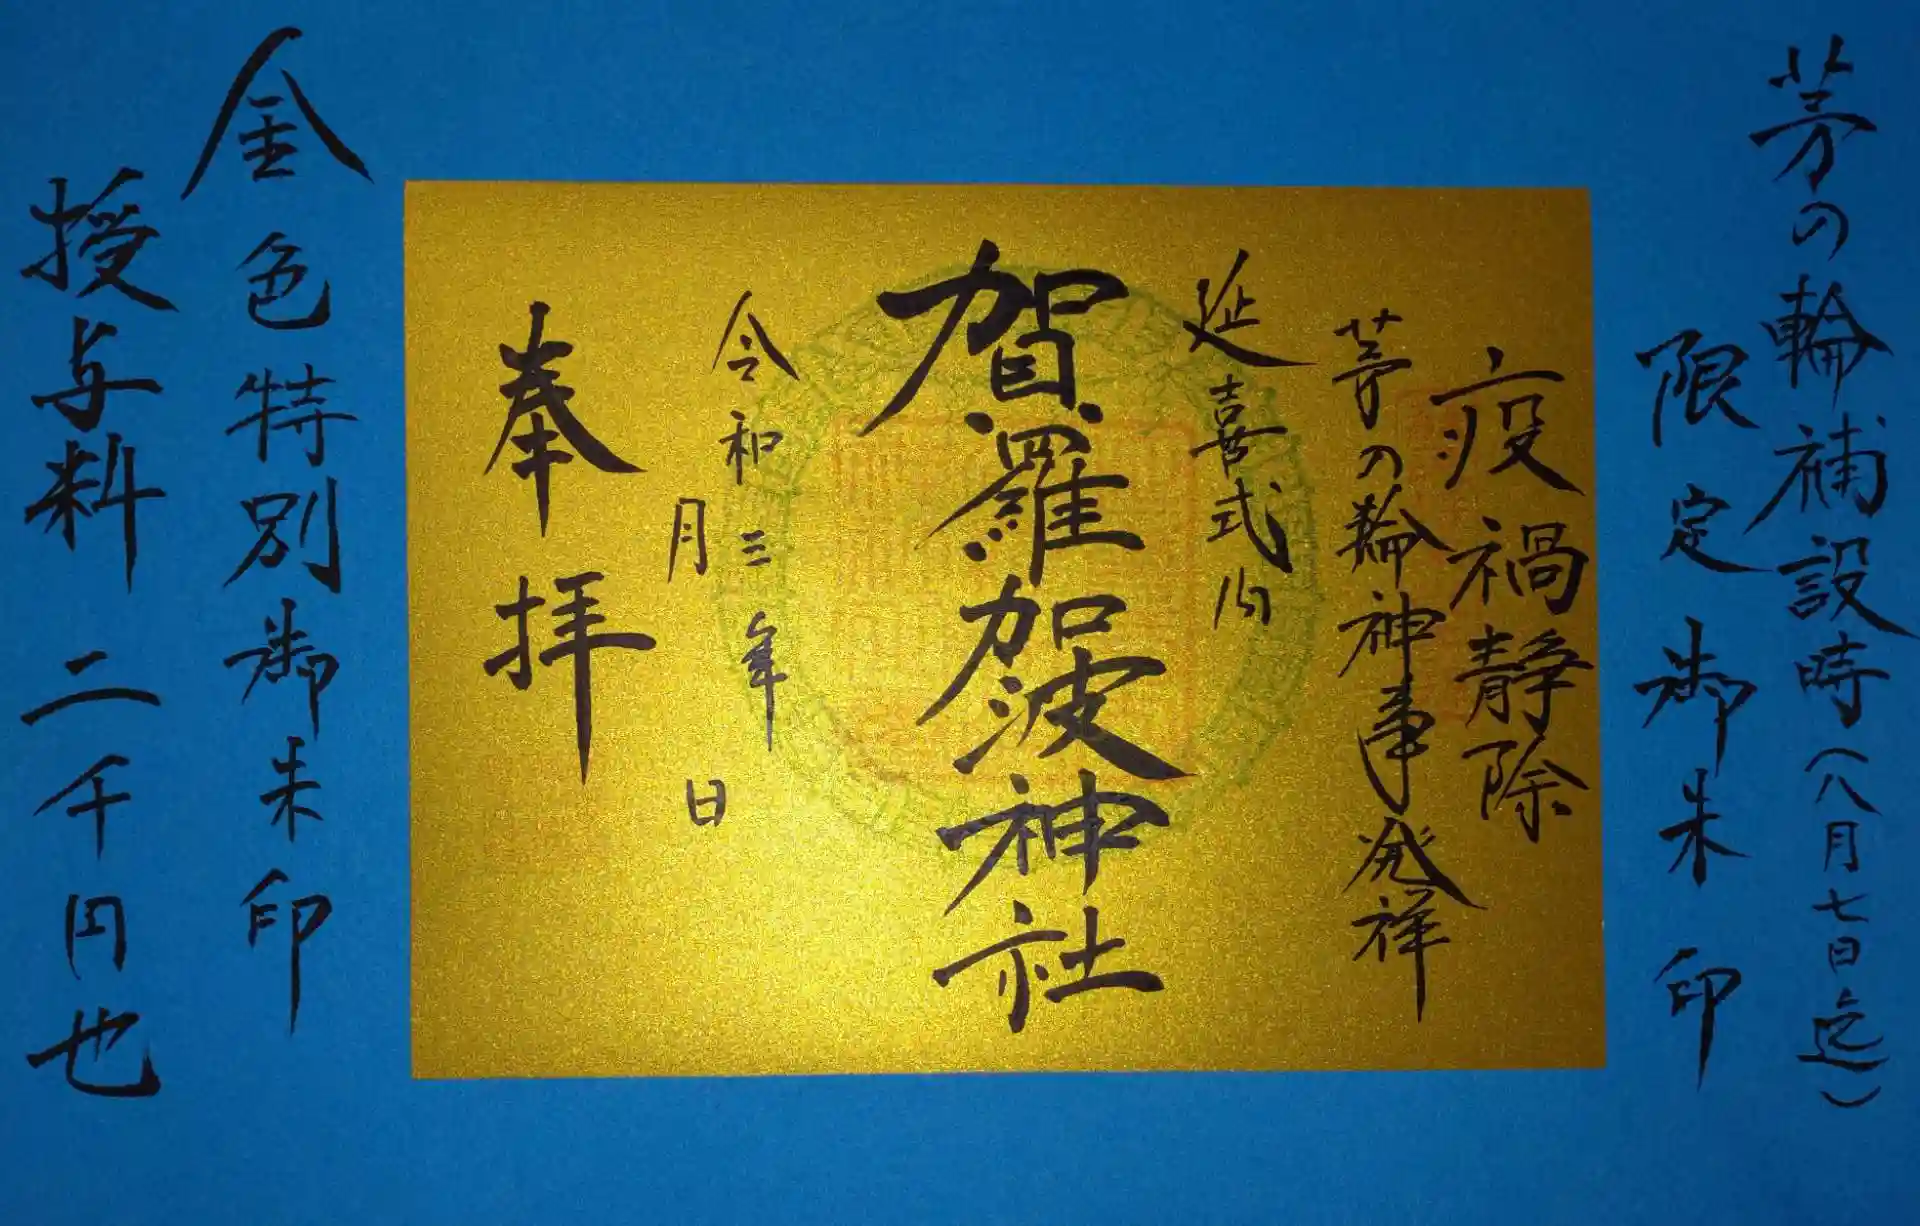 茅の輪補設時(八月七日迄)
限定御朱印
疫禍静除
茅の輪神事発祥
延喜式内
賀羅加波神社
令和三年
月 日
奉拝
金色特別御朱印
授与料 二千円也